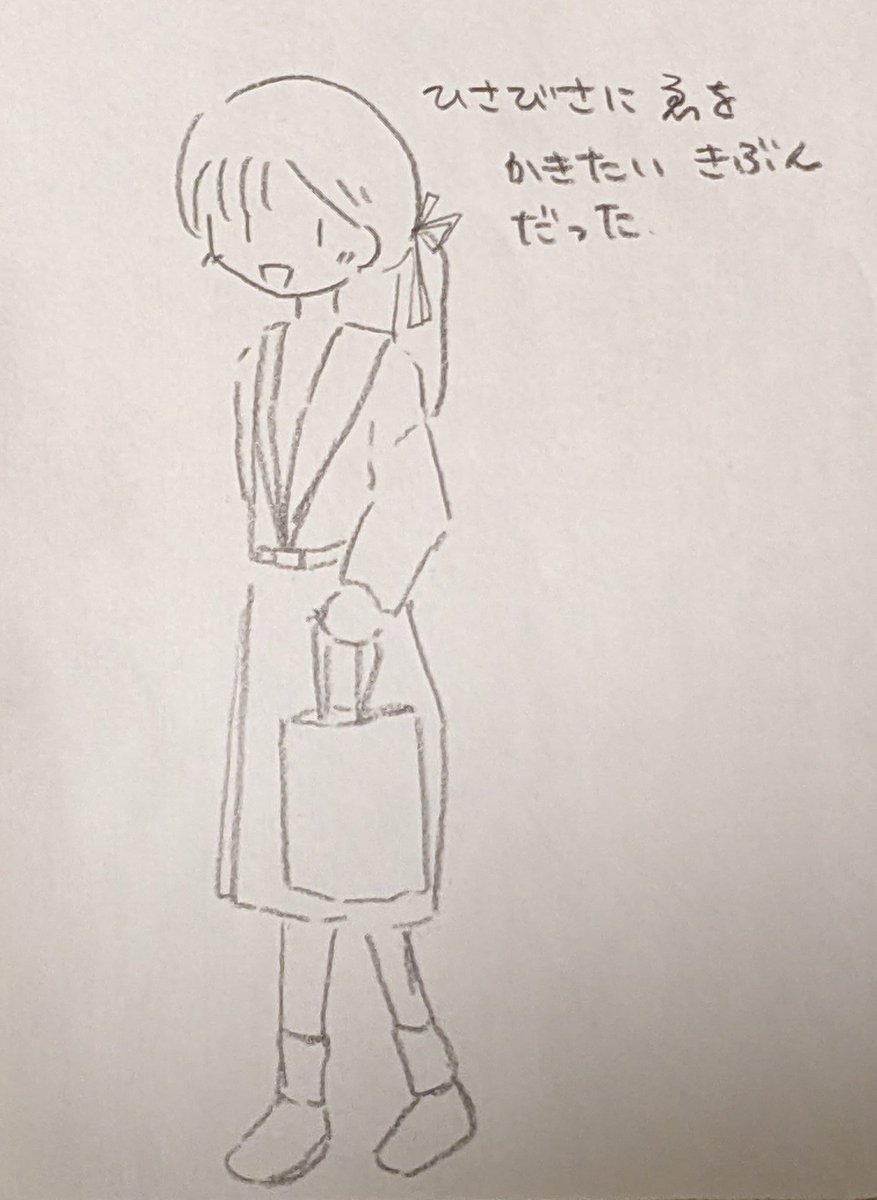 ひさびさに ゑを
かきたい きぶん
だった.